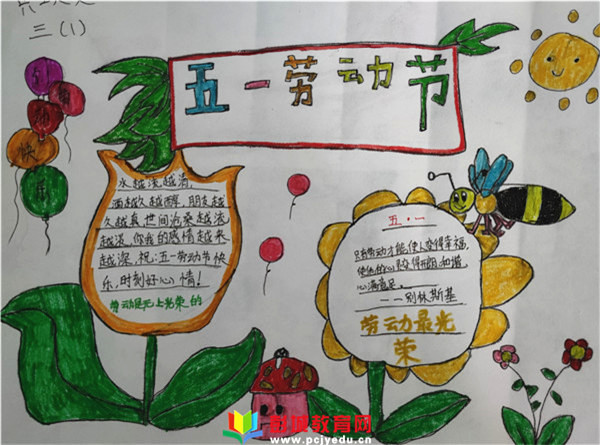 三(1)
五一劳动节
节
日
快
乐
水越流越清,
酒越久越醇,朋友越
久越真,世间沧桑越流
越淡,你我的感情越来
越深,祝:五一劳动节快
乐,时刻好心情!
劳动是无上光荣的
五.一
只有劳动才能使人变得幸福,
使他的心灵变得开朗、和谐,
心满意足。
——别林斯基
劳动最光
荣
彭城教育网
www.pcjyedu.cn